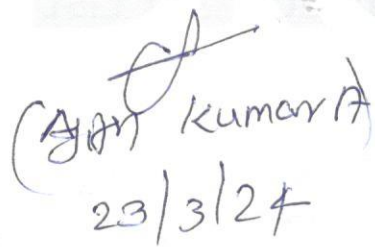 (Ajay Kumar A)
23/3/24